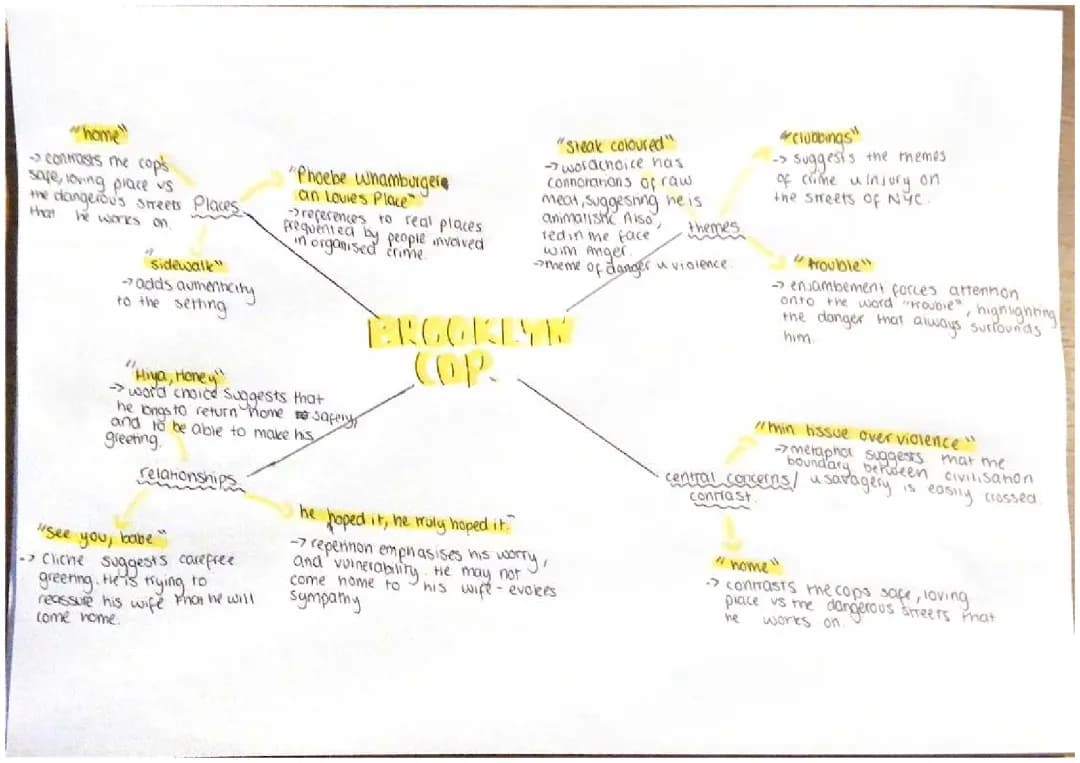 "home"
→ contrasts the cop's
safe, loving place vs
the dangerous streets
that he works on.
Places
"Phoebe Whamburger
an Louies Place"
→ references to real places
frequented by people involved
in organised crime.
"sidewalk"
→ adds authenticity
to the setting
"Steak coloured"
→ word choice has
connotations of raw
meat, suggesting he is
animalistic. Also,
red in the face
with anger.
→ theme of danger & violence.
themes
"clubbings"
→ suggests the themes
of crime & injury on
the streets of NYC.
"trouble"
→ enjambement forces attention
onto the word "trouble", highlighting
the danger that always surrounds
him.
BROOKLYN
COP.
"Hiya, Honey"
→ word choice suggests that
he longs to return home safely,
and to be able to make his
greeting.
relationships
"see you, babe"
→ Cliche suggests carefree
greeting. He is trying to
reassure his wife that he will
come home.
he hoped it, he truly hoped it."
→ repetition emphasises his worry,
and vulnerability. He may not
come home to his wife - evokes
sympathy
central concerns/
contrast.
"thin tissue over violence"
→ metaphor suggests that the
boundary between civilisation
& savagery is easily crossed
"home"
→ contrasts the cops safe, loving
place vs the dangerous streets that
he works on.